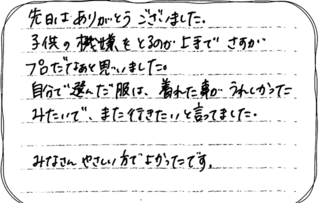 先日はありがとうございました。
子供の機嫌をとるのが上手でさすが
プロだなぁと思いました。
自分で選んだ服は、着れた事がうれしかった
みたいで、また行きたいと言ってました。
みなさんやさしい方でよかったです。